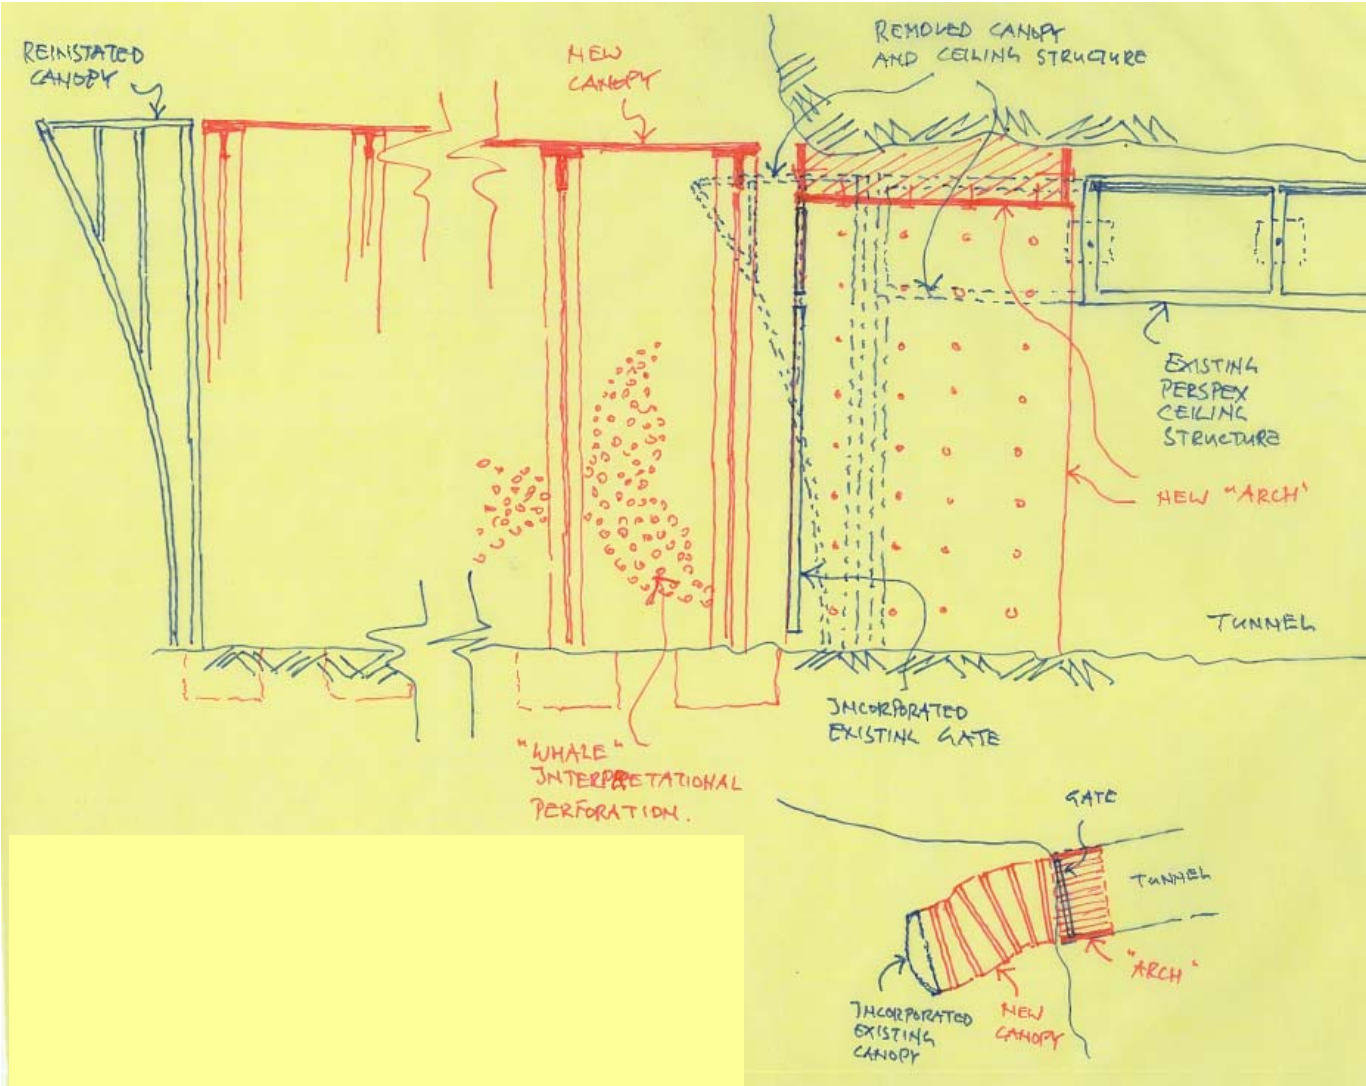 REINSTATED
CANOPY
NEW
CANOPY
REMOVED CANOPY
AND CEILING STRUCTURE
EXISTING
PERSPEX
CEILING
STRUCTURE
NEW "ARCH"
TUNNEL
INCORPORATED
EXISTING GATE
"WHALE"
INTERPRETATIONAL
PERFORATION.
GATE
TUNNEL
"ARCH"
NEW
CANOPY
INCORPORATED
EXISTING
CANOPY